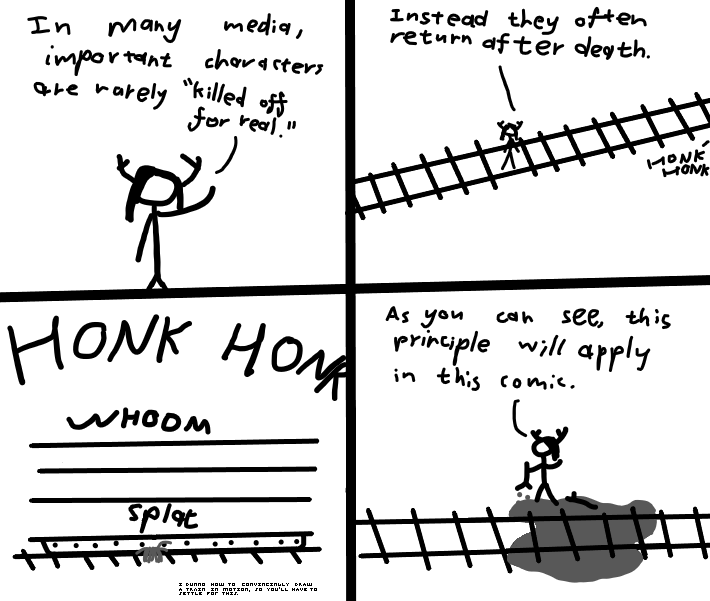 In many media,
important characters
are rarely "killed off
for real."
Instead they often
return after death.
HONK
HONK
HONK HONK
WHOOM
splat
I DUNNO HOW TO CONVINCINGLY DRAW
A TRAIN IN MOTION, SO YOU'LL HAVE TO
SETTLE FOR THIS.
As you can see, this
principle will apply
in this comic.